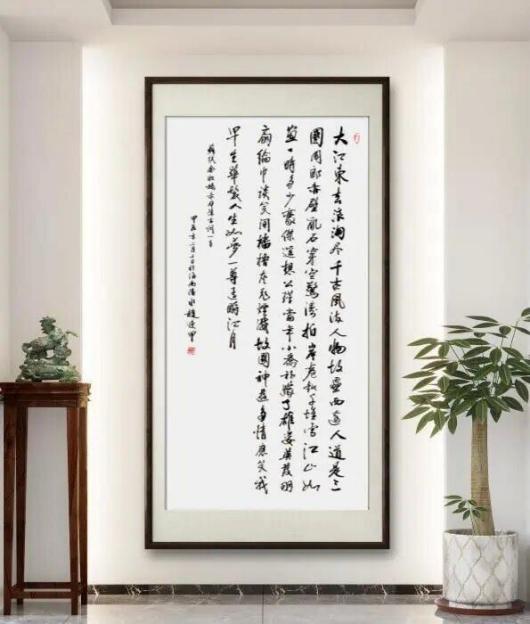 大江東去浪淘尽千古風流人物故壘西邊人道是三
國周郎赤壁亂石穿空驚濤拍岸卷起千堆雪江山如
畫一時多少豪傑遥想公瑾當年小喬初嫁了雄姿英發羽
扇綸巾談笑間檣櫓灰飛煙滅故國神遊多情應笑我
早生華髮人生如夢一尊還酹江月
蘇軾念奴嬌赤壁懷古詞一首
甲辰年二月於海南陵水